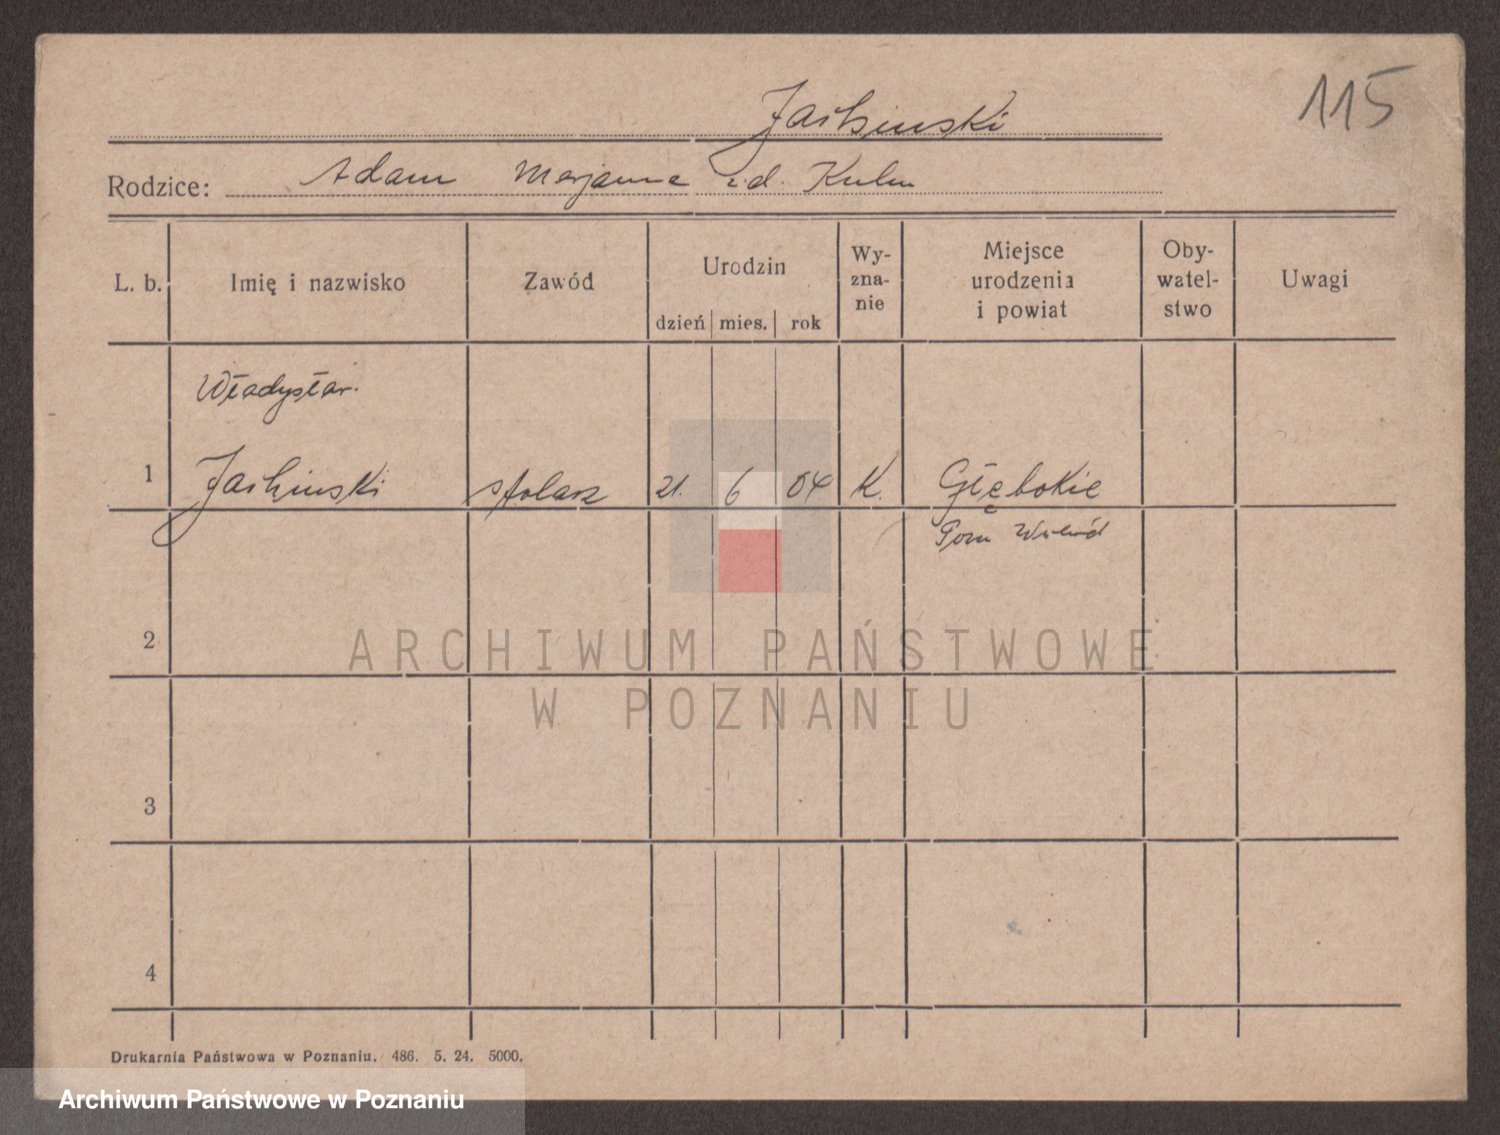 115
Rodzice: Adam Marjanna zd. Kuhn
L. b.
Imię i nazwisko
Zawód
Urodzin
dzień mies. rok
Wy-
zna-
nie
Miejsce
urodzenia
i powiat
Oby-
watel-
stwo
Uwagi
Władysław.
1 stolarz 21. 6 04 K. Głębokie
2
3
4
ARCHIWUM PAŃSTWOWE
W POZNANIU
Drukarnia Państwowa w Poznaniu. 486. 5. 24. 5000.
Archiwum Państwowe w Poznaniu